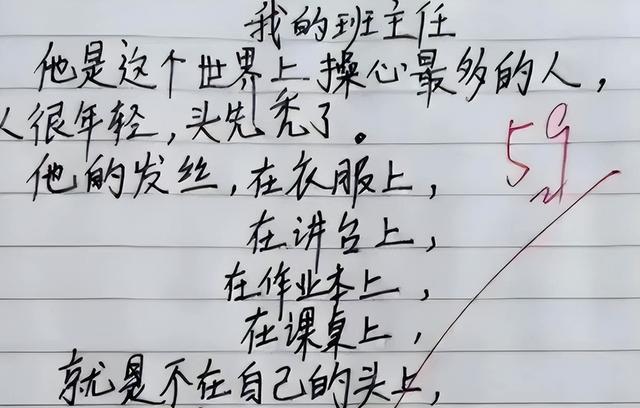 我的班主任
他是这个世界上操心最多的人，
人很年轻，头先秃了。
他的发丝，在衣服上，
在讲台上，
在作业本上，
在课桌上，
就是不在自己的头上，
59